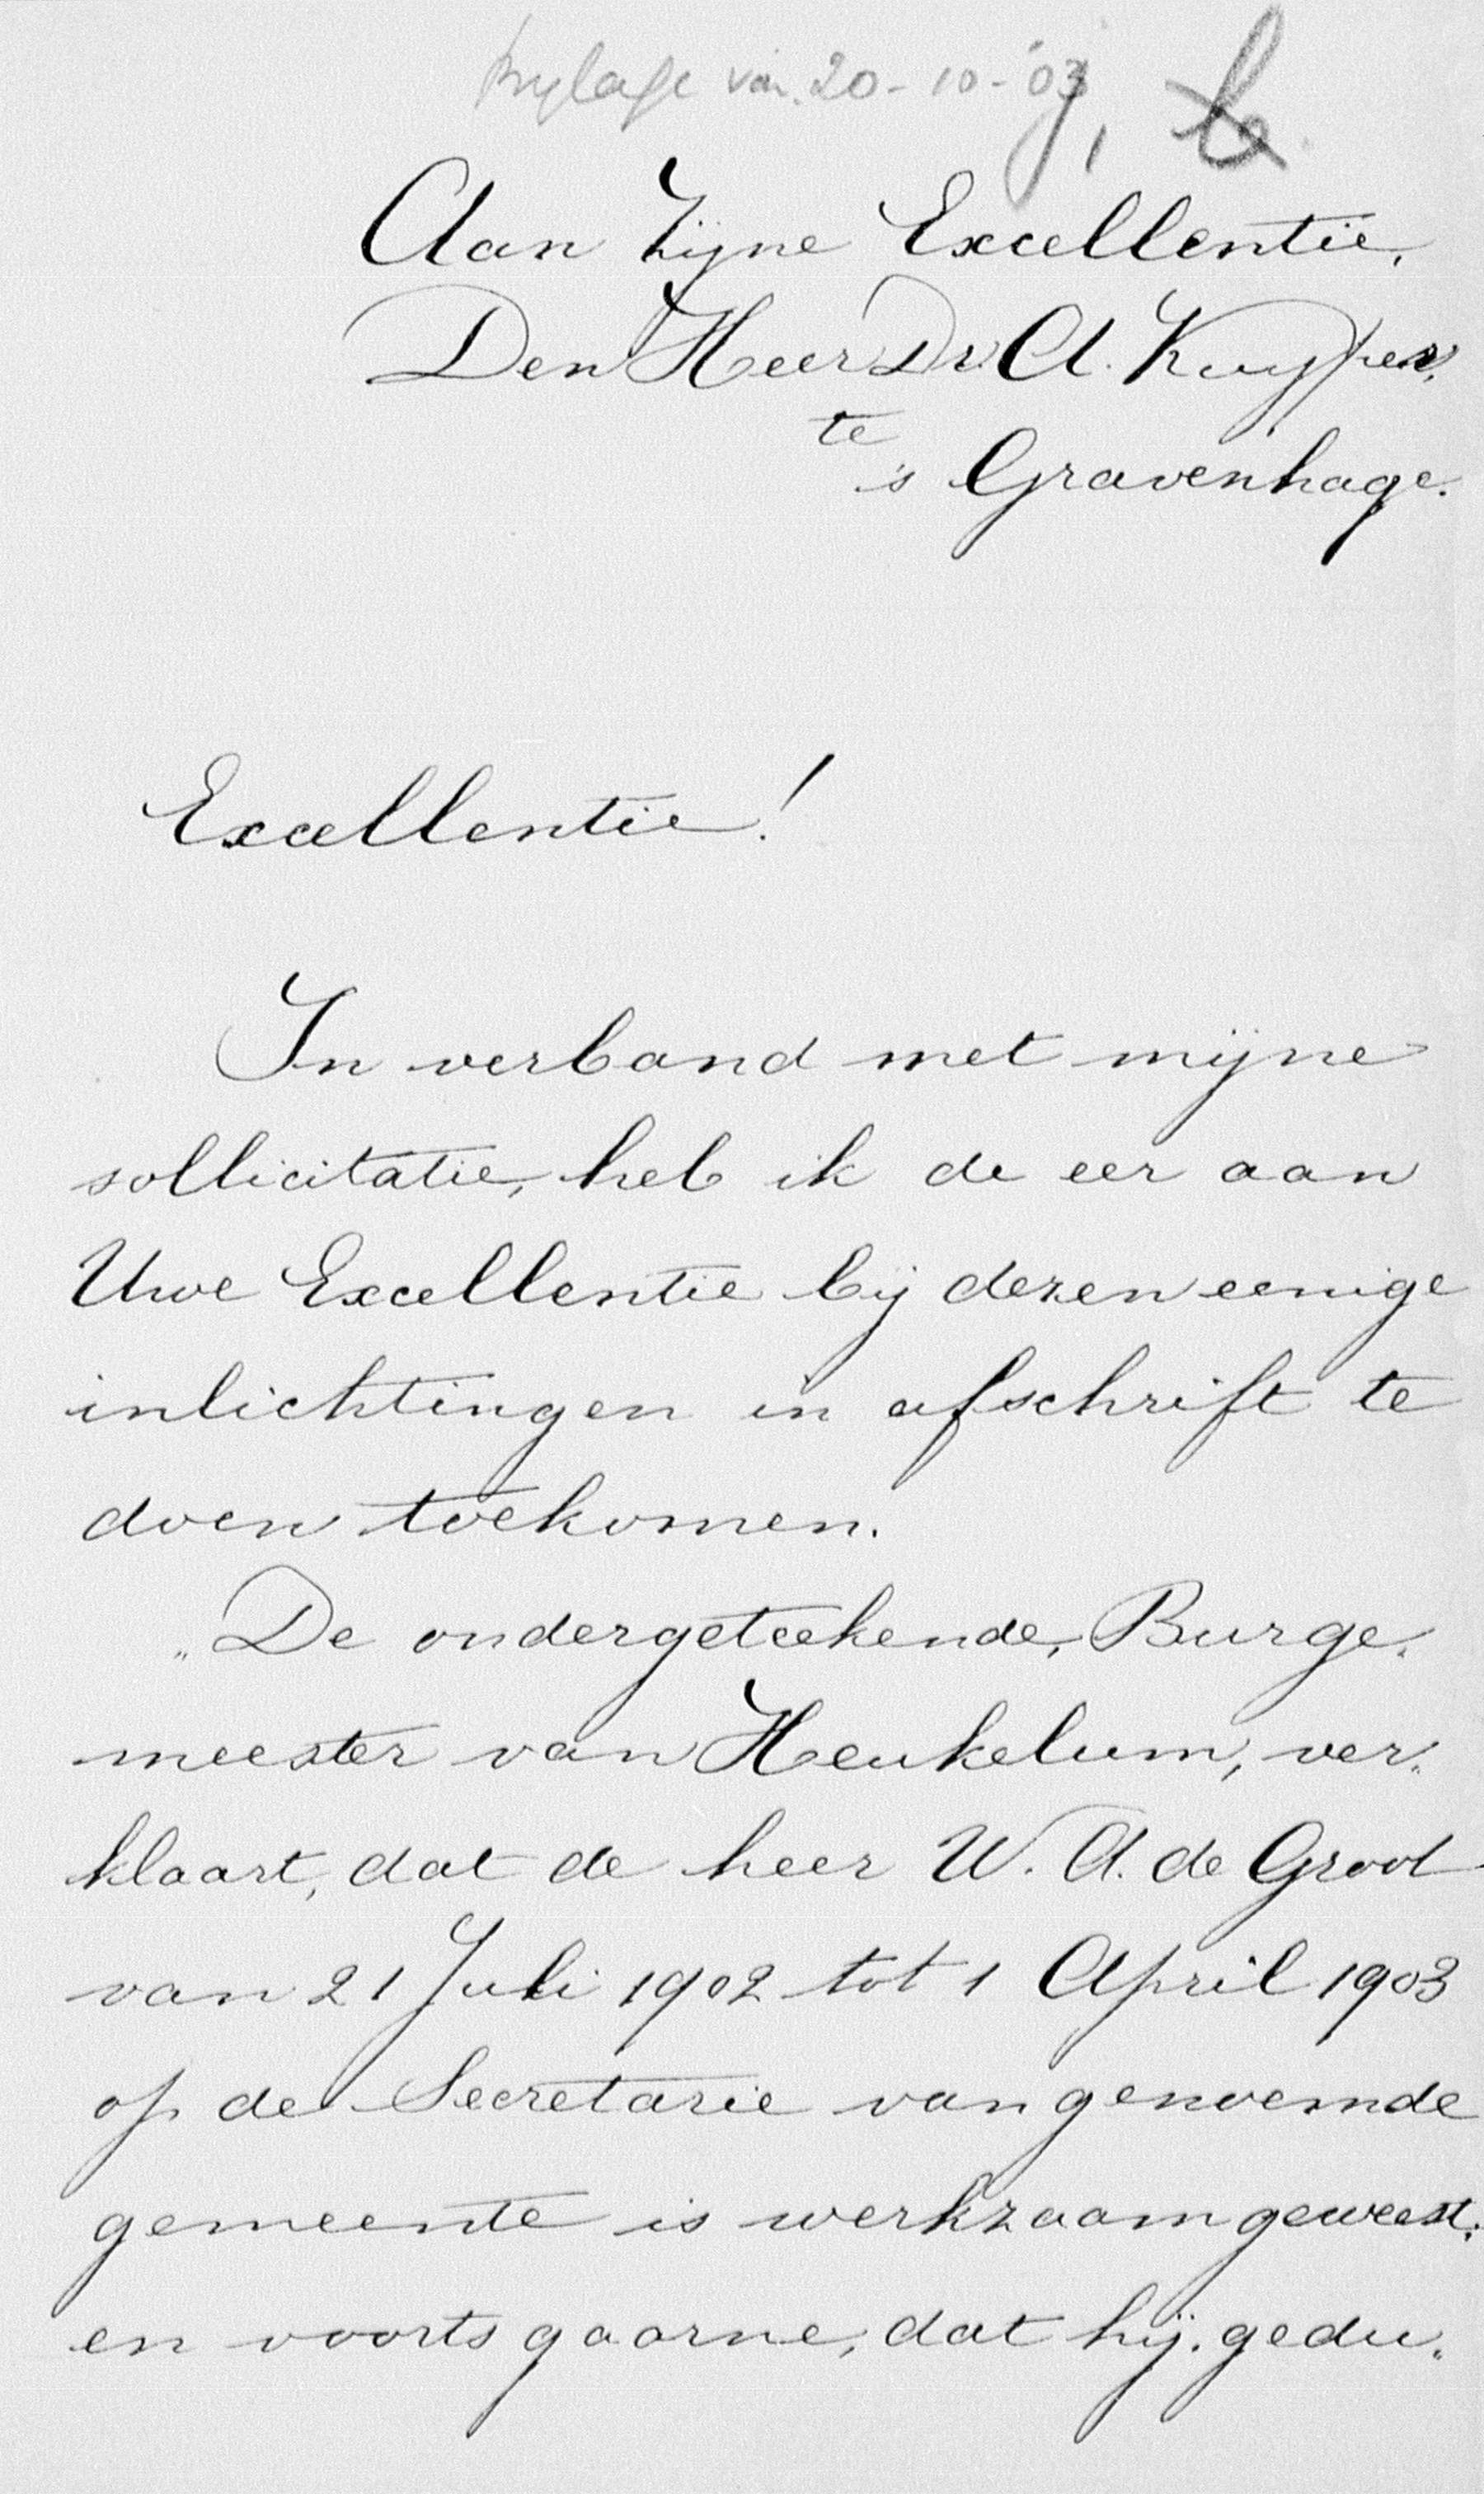 bijlage van 20-10-'03,
Aan Zijne Excellentie,
Den Heer Dr. A. Kuyper,
te
's Gravenhage.
Excellentie!
In verband met mijne
sollicitatie, heb ik de eer aan
Uwe Excellentie bij dezen eenige
inlichtingen in afschrift te
doen toekomen.
„De ondergeteekende, Burge„
meester van Heukelum, ver„
klaart, dat de heer W. A. de Groot
van 21 Juli 1902 tot 1 April 1903
op de Secretarie van genoemde
gemeente is werkzaam geweest.
en voorts gaarne, dat hij. gedu„